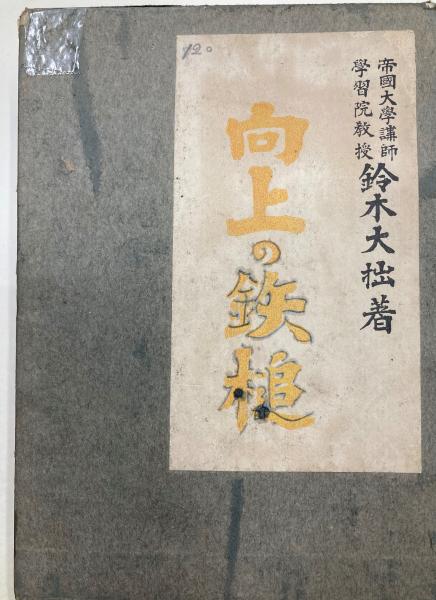 帝國大學講師
學習院教授
鈴木大拙著
向上の鉄槌
120